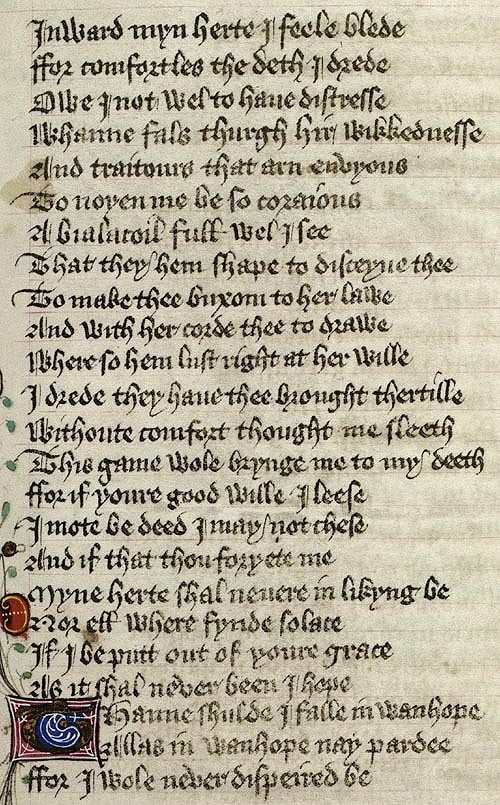 Inward myn herte I feele blede
ffor comfortles the deth I drede
Owe I not wel to haue distresse
Whanne fals thurgh hir wikkednesse
And traitours that arn envyous
To noyen me be so coraious
A bialacoil full wel I see
That they hem shape to disceyue thee
To make thee buxom to her lawe
And with her corde thee to drawe
Where so hem lust right at her wille
I drede they haue thee brought thertille
Withoute comfort thought me sleeth
This game wole brynge me to my deeth
ffor if youre good wille I leese
I mote be deed I may not chese
And if that thou foryete me
Myne herte shal neuere in likyng be
Nor elles where fynde solace
If I be putt out of youre grace
As it shal never been I hope
Thanne shulde I falle in wanhope
Allas in wanhope nay pardee
ffor I wole never dispeired be